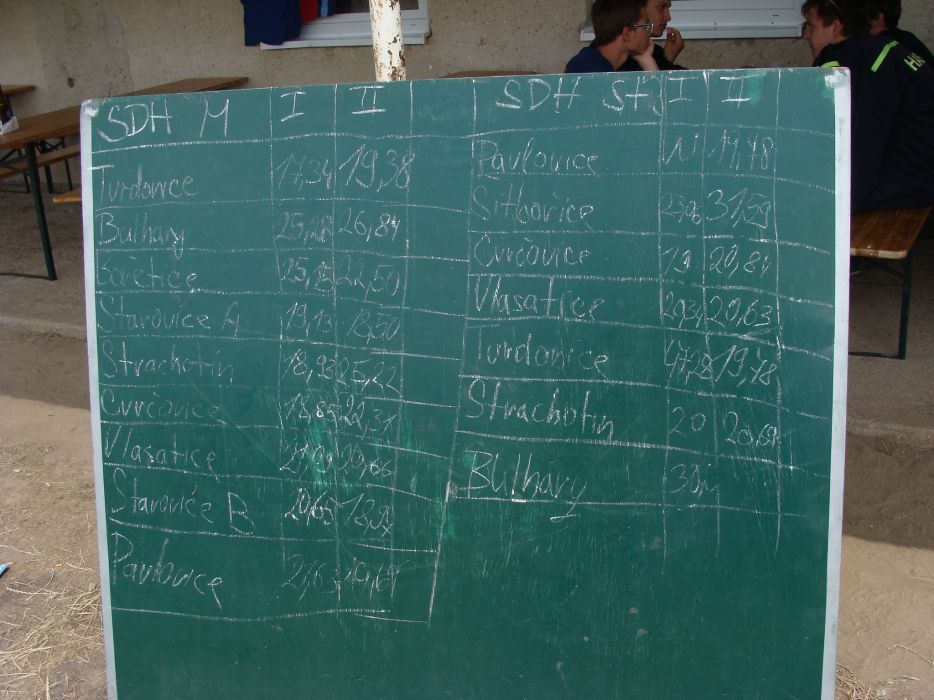 SDH M I II
Tvrdonice 17,34 19,38
Bulhary 25,28 26,84
Bořetice 22,50
Starovice A 19,13 18,50
Strachotín 18,93 25,22
Cvrčovice 18,85 22,31
Vlasatice 20,66
Starovice B 18,92
Pavlovice 21,63
SDH St I II
Pavlovice N 19,78
Šitbořice 23,06 31,59
Cvrčovice 19 20,84
Vlasatice 20,63
Tvrdonice 47,28 19,78
Strachotín 20 20,69
Bulhary